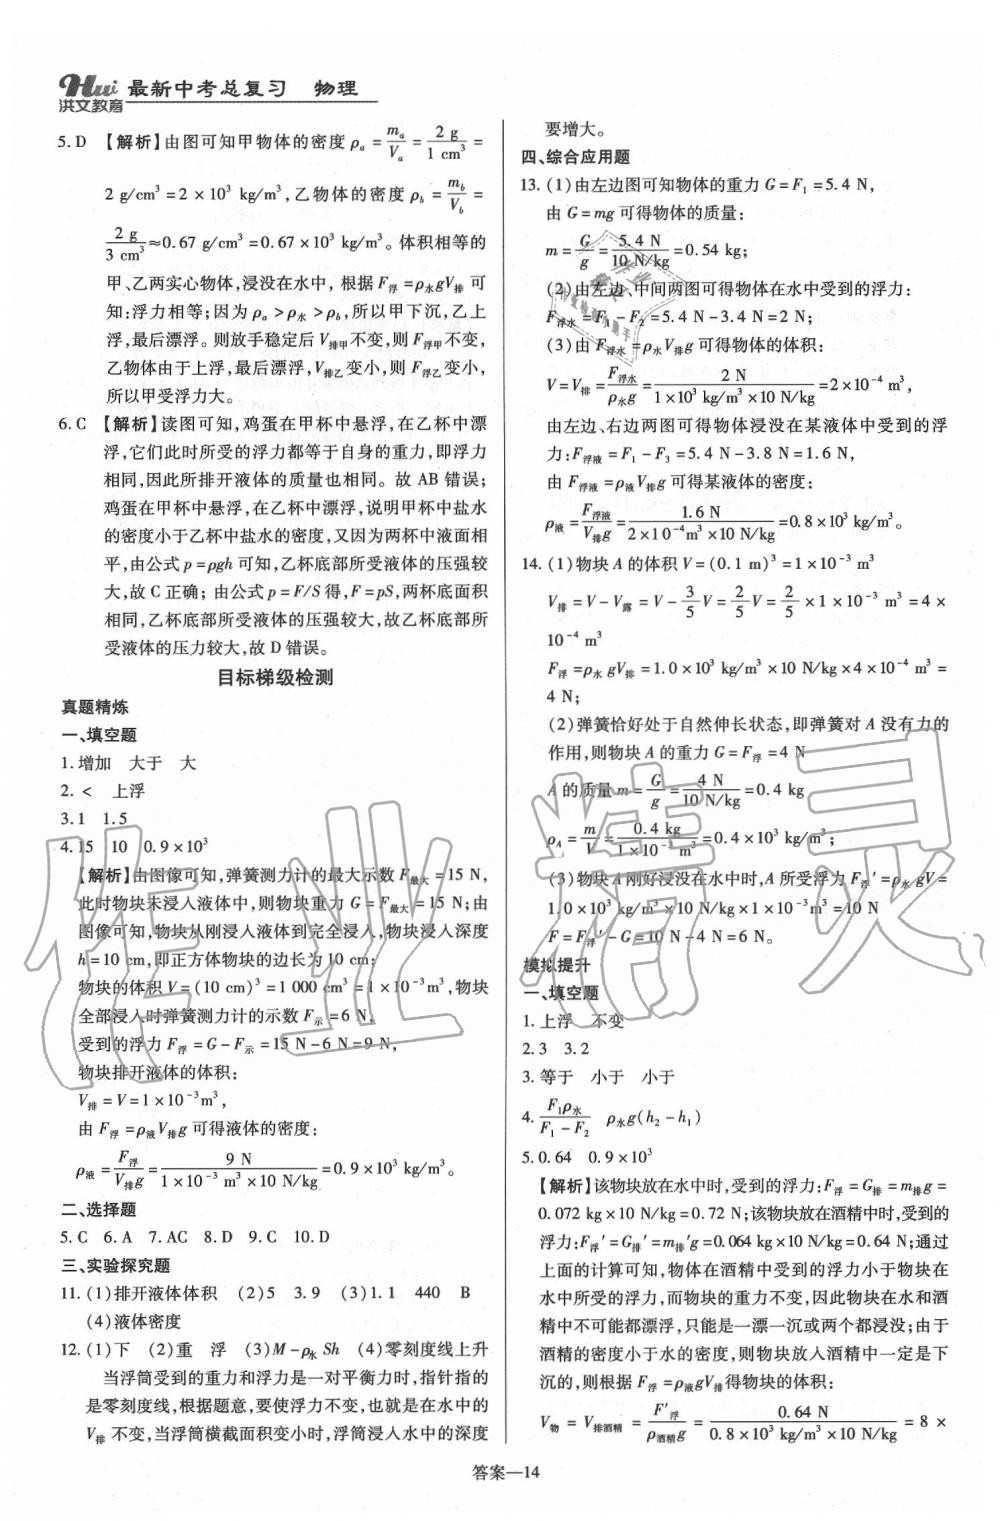 Hwi 最新中考总复习 物理
洪文教育
5. D 【解析】由图可知甲物体的密度 ρₐ = mₐ/Vₐ = 2 g/1 cm³ =
2 g/cm³ = 2 × 10³ kg/m³,乙物体的密度 ρ_b = m_b/V_b =
2 g/3 cm³ ≈0.67 g/cm³ =0.67 ×10³ kg/m³。体积相等的
甲、乙两实心物体,浸没在水中,根据 F浮 =ρ水gV排 可
知:浮力相等;因为 ρₐ >ρ水 >ρ_b,所以甲下沉,乙上
浮,最后漂浮。则放手稳定后 V排甲不变,则 F浮甲不变,
乙物体由于上浮,最后漂浮,V排乙变小,则 F浮乙变小,
所以甲受浮力大。
6. C 【解析】读图可知,鸡蛋在甲杯中悬浮,在乙杯中漂
浮,它们此时所受的浮力都等于自身的重力,即浮力
相同,因此所排开液体的质量也相同。故 AB 错误;
鸡蛋在甲杯中悬浮,在乙杯中漂浮,说明甲杯中盐水
的密度小于乙杯中盐水的密度,又因为两杯中液面相
平,由公式 p =ρgh 可知,乙杯底部所受液体的压强较
大,故 C 正确; 由公式 p =F/S 得,F =pS,两杯底面积
相同,乙杯底部所受液体的压强较大,故乙杯底部所
受液体的压力较大,故 D 错误。
目标梯级检测
真题精炼
一、填空题
1. 增加 大于 大
2. < 上浮
3. 1 1.5
4. 15 10 0.9 ×10³
【解析】由图像可知,弹簧测力计的最大示数 F最大 =15 N,
此时物块未浸入液体中,则物块重力 G =F最大 =15 N;由
图像可知,物块从刚浸入液体到完全浸入,物块浸入深度
h =10 cm,即正方体物块的边长为 10 cm;
物块的体积 V =(10 cm)³ =1 000 cm³ =1 ×10⁻³ m³,物块
全部浸入时弹簧测力计的示数 F示 =6 N,
受到的浮力 F浮 =G -F示 =15 N -6 N =9 N,
物块排开液体的体积:
V排 =V =1 ×10⁻³ m³,
由 F浮 =ρ液V排g 可得液体的密度:
ρ液 = F浮/V排g = 9 N/1 ×10⁻³ m³ ×10 N/kg =0.9 ×10³ kg/m³。
二、选择题
5. C 6. A 7. AC 8. D 9. C 10. D
三、实验探究题
11. (1)排开液体体积 (2)5 3.9 (3)1.1 440 B
(4)液体密度
12. (1)下 (2)重 浮 (3)M -ρ水 Sh (4)零刻度线上升
当浮筒受到的重力和浮力是一对平衡力时,指针指的
是零刻度线,根据题意,要使浮力不变,也就是在水中的
V排 不变,当浮筒横截面积变小时,浮筒浸入水中的深度
要增大。
四、综合应用题
13. (1)由左边图可知物体的重力 G =F₁ =5.4 N,
由 G =mg 可得物体的质量:
m = G/g = 5.4 N/10 N/kg =0.54 kg;
(2)由左边、中间两图可得物体在水中受到的浮力:
F浮水 =F₁ -F₂ =5.4 N -3.4 N =2 N;
(3)由 F浮水 =ρ水V排g 可得物体的体积:
V =V排 = F浮水/ρ水g = 2 N/1 ×10³ kg/m³ ×10 N/kg =2 ×10⁻⁴ m³,
由左边、右边两图可得物体浸没在某液体中受到的浮
力:F浮液 =F₁ -F₃ =5.4 N -3.8 N =1.6 N,
由 F浮液 =ρ液V排g 可得某液体的密度:
ρ液 = F浮液/V排g = 1.6 N/2 ×10⁻⁴ m³ ×10 N/kg =0.8 ×10³ kg/m³。
14. (1)物块 A 的体积 V =(0.1 m)³ =1 ×10⁻³ m³
V排 =V -V露 =V - 3/5 V = 2/5 V = 2/5 V = 2/5 ×1 ×10⁻³ m³ =4 ×
10⁻⁴ m³
F浮 =ρ水 gV排 =1.0 ×10³ kg/m³ ×10 N/kg ×4 ×10⁻⁴ m³ =
4 N;
(2)弹簧恰好处于自然伸长状态,即弹簧对 A 没有力的
作用,则物块 A 的重力 G =F浮 =4 N
A 的质量 m = G/g = 4 N/10 N/kg =0.4 kg
ρ_A = m/V = 0.4 kg/1 ×10⁻³ m³ =0.4 ×10³ kg/m³;
(3)物块 A 刚好浸没在水中时,A 所受浮力 F浮′ =ρ水 gV =
1.0 ×10³ kg/m³ ×10 N/kg ×1 ×10⁻³ m³ =10 N
F =F浮′ -G =10 N -4 N =6 N。
模拟提升
一、填空题
1. 上浮 不变
2. 3 3.2
3. 等于 小于 小于
4. F₁ρ水/F₁ -F₂ ρ水g(h₂ -h₁)
5. 0.64 0.9 ×10³
【解析】该物块放在水中时,受到的浮力:F浮 =G排 =m排g =
0.072 kg ×10 N/kg =0.72 N;该物块放在酒精中时,受到的
浮力:F浮′ =G排′ =m排′g =0.064 kg ×10 N/kg =0.64 N;通过
上面的计算可知,物体在酒精中受到的浮力小于物块在
水中所受的浮力,而物块的重力不变,因此物块在水和酒
精中不可能都漂浮,只能是一漂一沉或两个都浸没;由于
酒精的密度小于水的密度,则物块放入酒精中一定是下
沉的,则根据 F浮 =ρ液gV排得物块的体积:
V物 = V排酒精 = F′浮/ρ酒精g = 0.64 N/0.8 ×10³ kg/m³ ×10 N/kg = 8 ×
答案—14
作业精灵